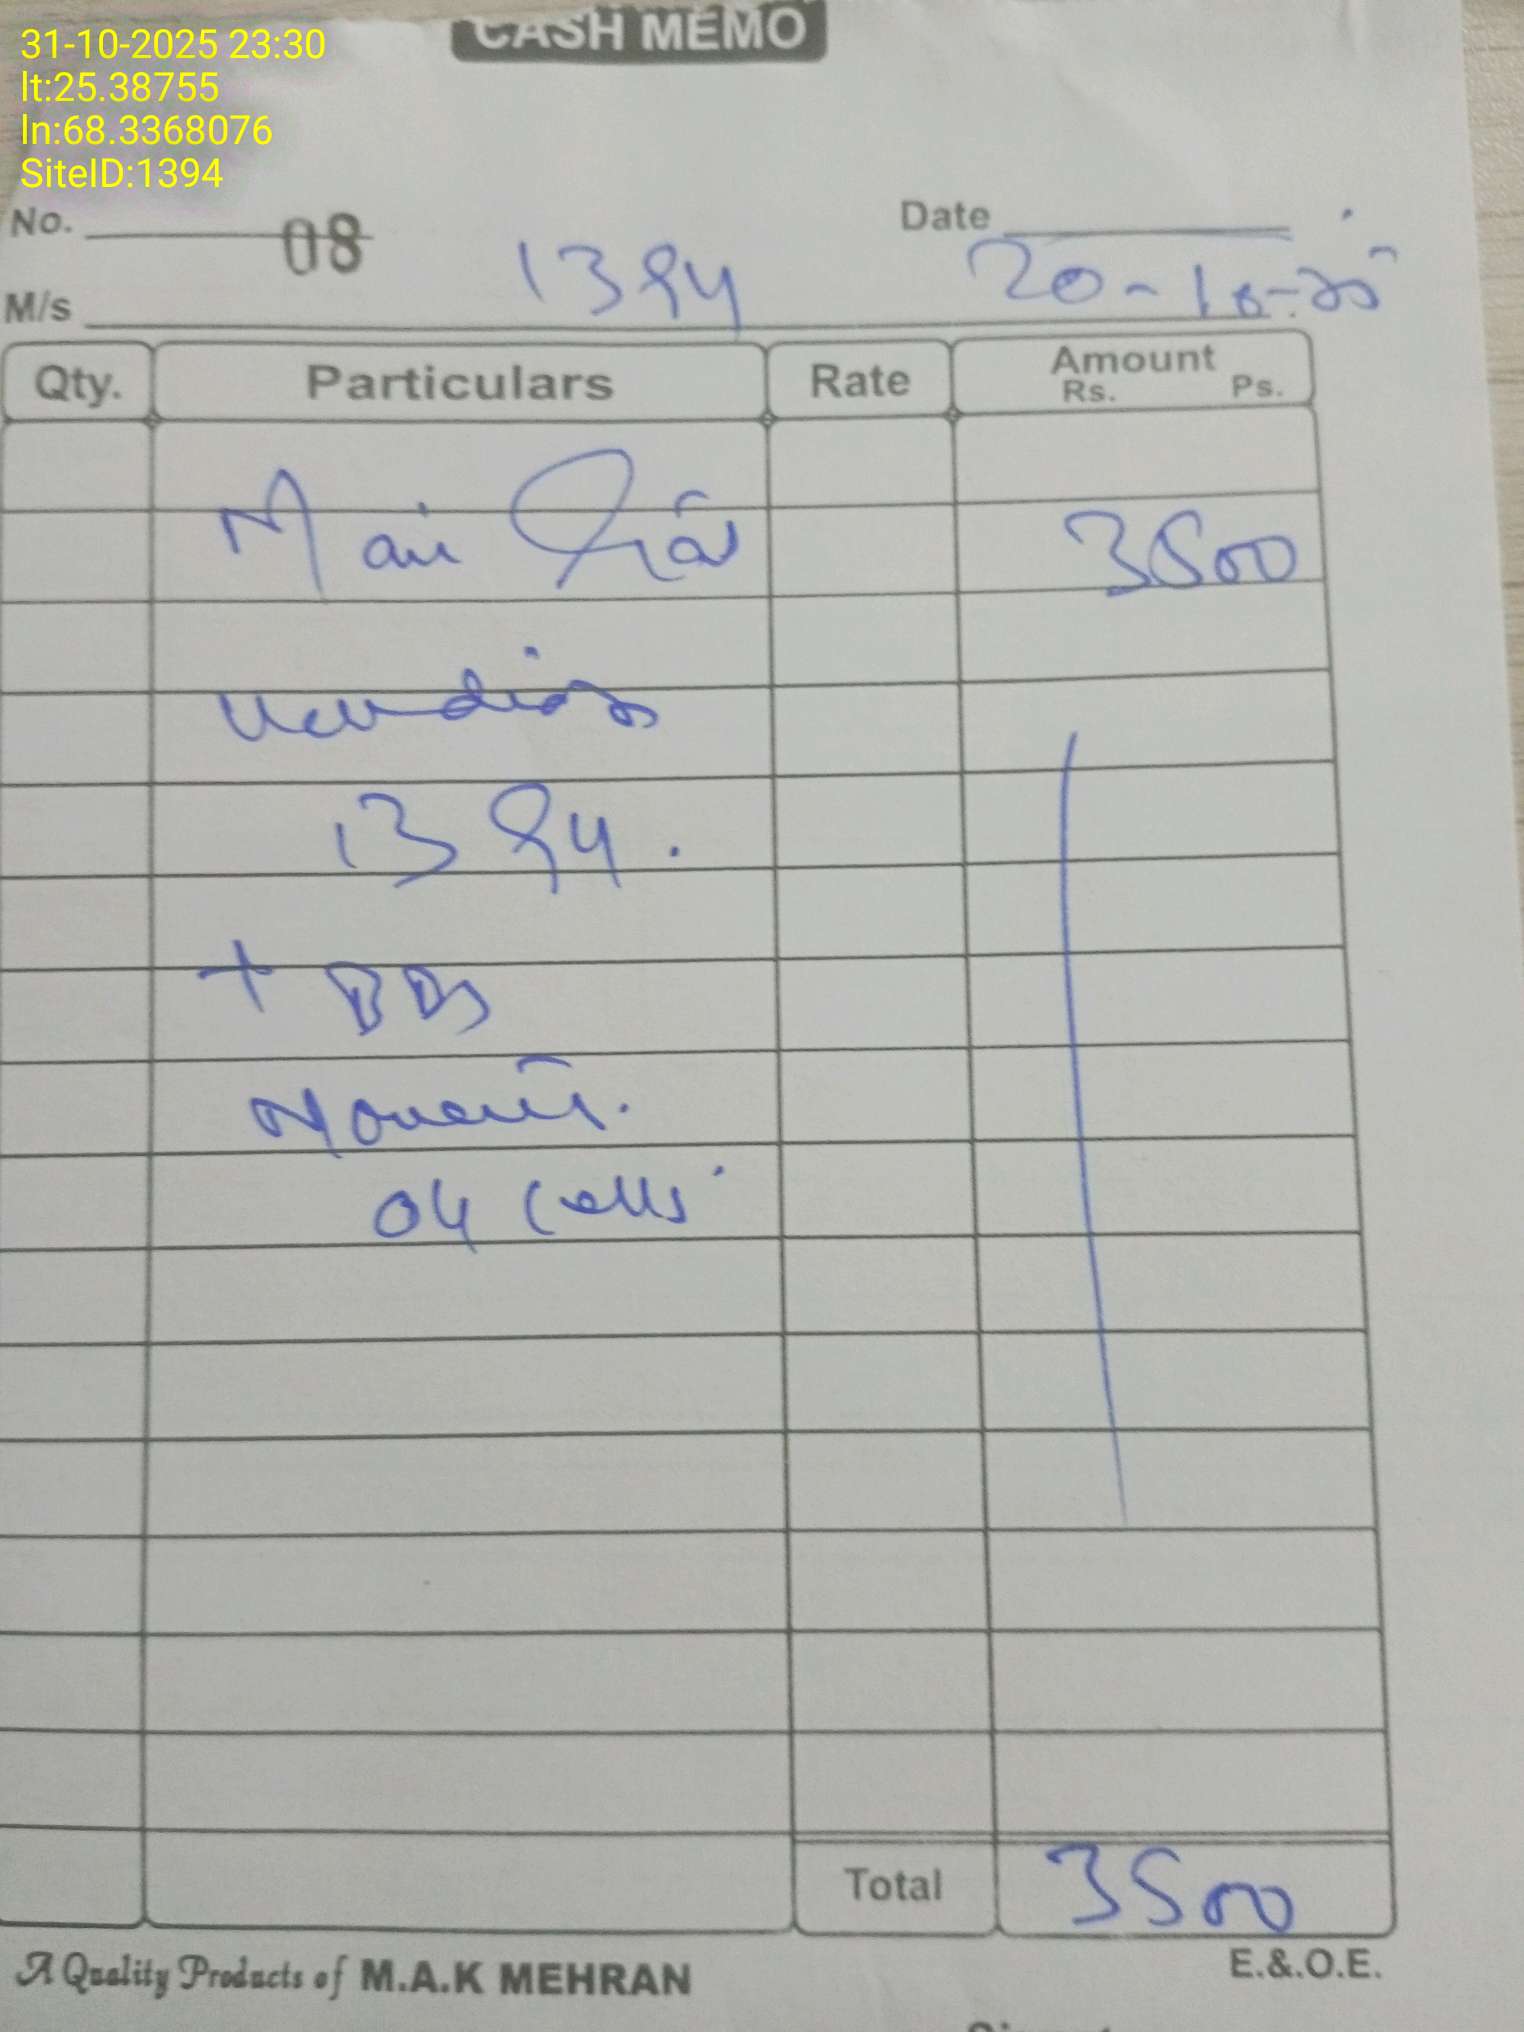 31-10-2025 23:30
lt:25.38755
ln:68.3368076
SiteID:1394
CASH MEMO
No. 08
Date 20-10-25
M/s 1394
Qty. Particulars Rate Amount
Rs. Ps.
3500
1394.
+
04 Cells
Total 3500
A Quality Products of M.A.K MEHRAN
E.&.O.E.